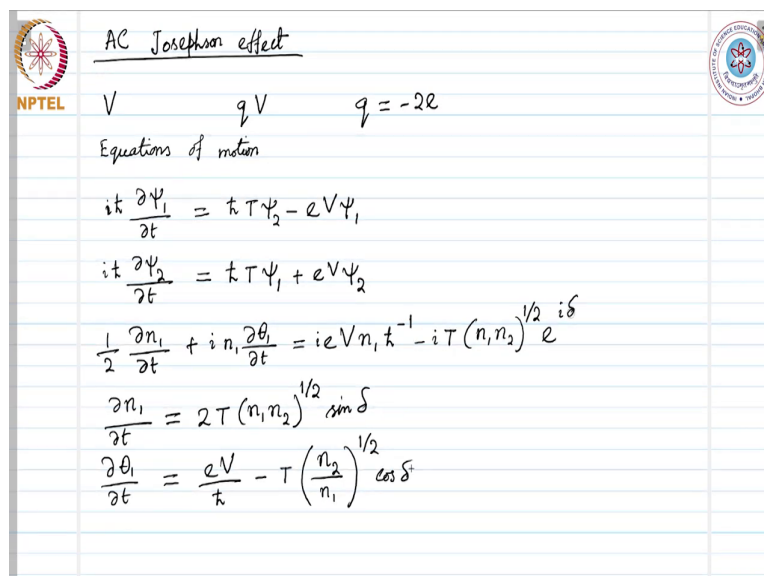 AC Josephson effect
NPTEL
V qV q = -2e
Equations of motion
iħ ∂ψ₁/∂t = ħTψ₂ - eVψ₁
iħ ∂ψ₂/∂t = ħTψ₁ + eVψ₂
1/2 ∂n₁/∂t + in₁ ∂θ₁/∂t = ieVn₁ħ⁻¹ - iT(n₁n₂)^1/2 e^iδ
∂n₁/∂t = 2T(n₁n₂)^1/2 sin δ
∂θ₁/∂t = eV/ħ - T(n₂/n₁)^1/2 cos δ